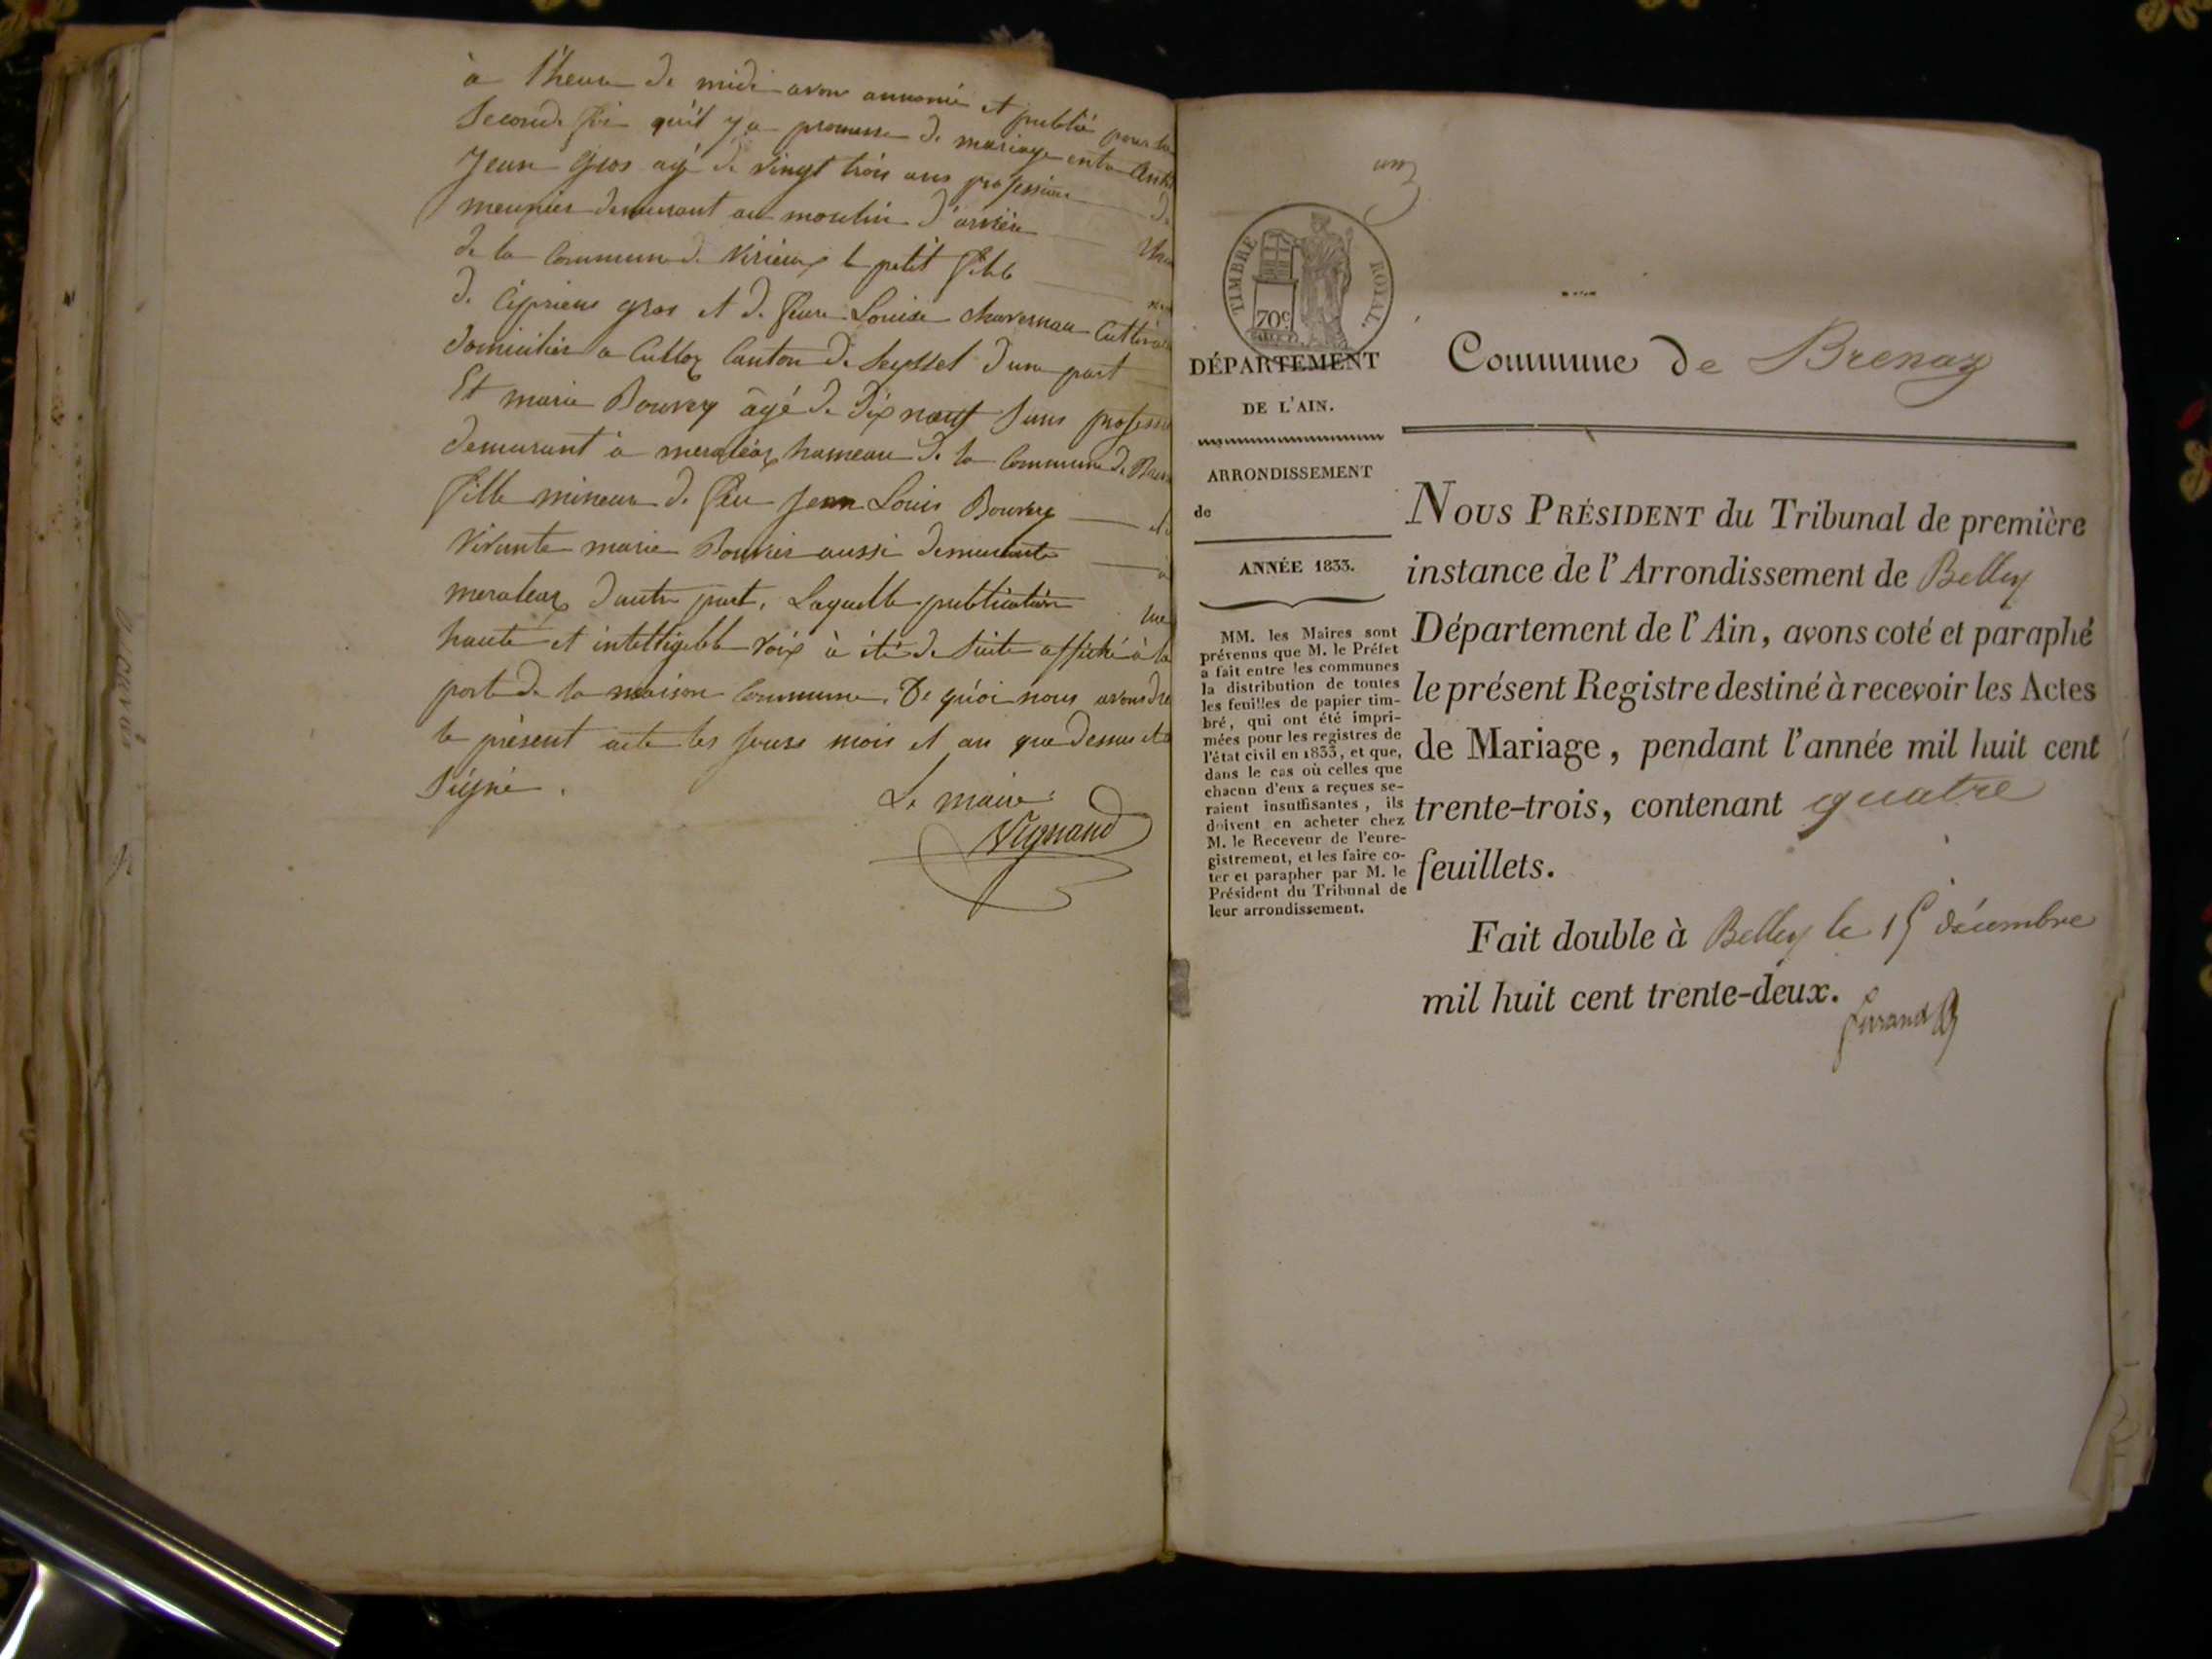 à l'heure de midi avons annoncé et publié pour la
Seconde foi qu'il y a promesse de mariage entre
Jean Gros agé de vingt trois ans profession de
meunier demeurant au moulin d'arvière
de la Commune de Virieux le petit fils
de Ciprien gros et de feue Louise
domiciliés a Culloz Canton de Seyssel d'une part
Et marie Bouvey âgé de dix neuf Sans
demeurant à meraléaz hameau de la Commune de
fille mineur de feu Jean Louis Bouvey et
vivante marie aussi demeurante à
meraleaz d'autre part, Laquelle publication
haute et intelligible voix à été de suite affiché à la
porte de la maison Commune. De quoi nous avons
le présent acte les jours mois et an que dessus et
Signé.
Le maire
Vignand
un
TIMBRE ROYAL.
70c
DÉPARTEMENT
DE L'AIN.
ARRONDISSEMENT
de
ANNÉE 1833.
MM. les Maires sont
prévenus que M. le Préfet
a fait entre les communes
la distribution de toutes
les feuilles de papier tim-
bré, qui ont été impri-
mées pour les registres de
l'état civil en 1833, et que,
dans le cas où celles que
chacun d'eux a reçues se-
raient insuffisantes, ils
doivent en acheter chez
M. le Receveur de l'enre-
gistrement, et les faire co-
ter et parapher par M. le
Président du Tribunal de
leur arrondissement.
Commune de Brenaz
NOUS PRÉSIDENT du Tribunal de première
instance de l'Arrondissement de Belley
Département de l'Ain, avons coté et paraphé
le présent Registre destiné à recevoir les Actes
de Mariage, pendant l'année mil huit cent
trente-trois, contenant quatre
feuillets.
Fait double à Belley le 15 décembre
mil huit cent trente-deux.